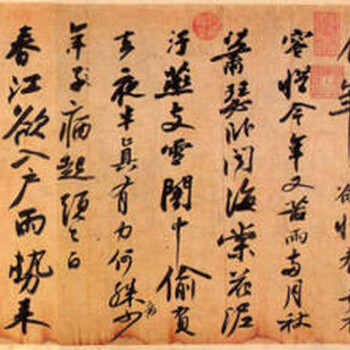 年〻欲惜春春去不
容惜今年又苦雨兩月秋
蕭瑟卧聞海棠花泥
汙燕支雪闇中偷負
去夜半真有力何殊少病
年子病起頭已白
春江欲入戶雨勢來